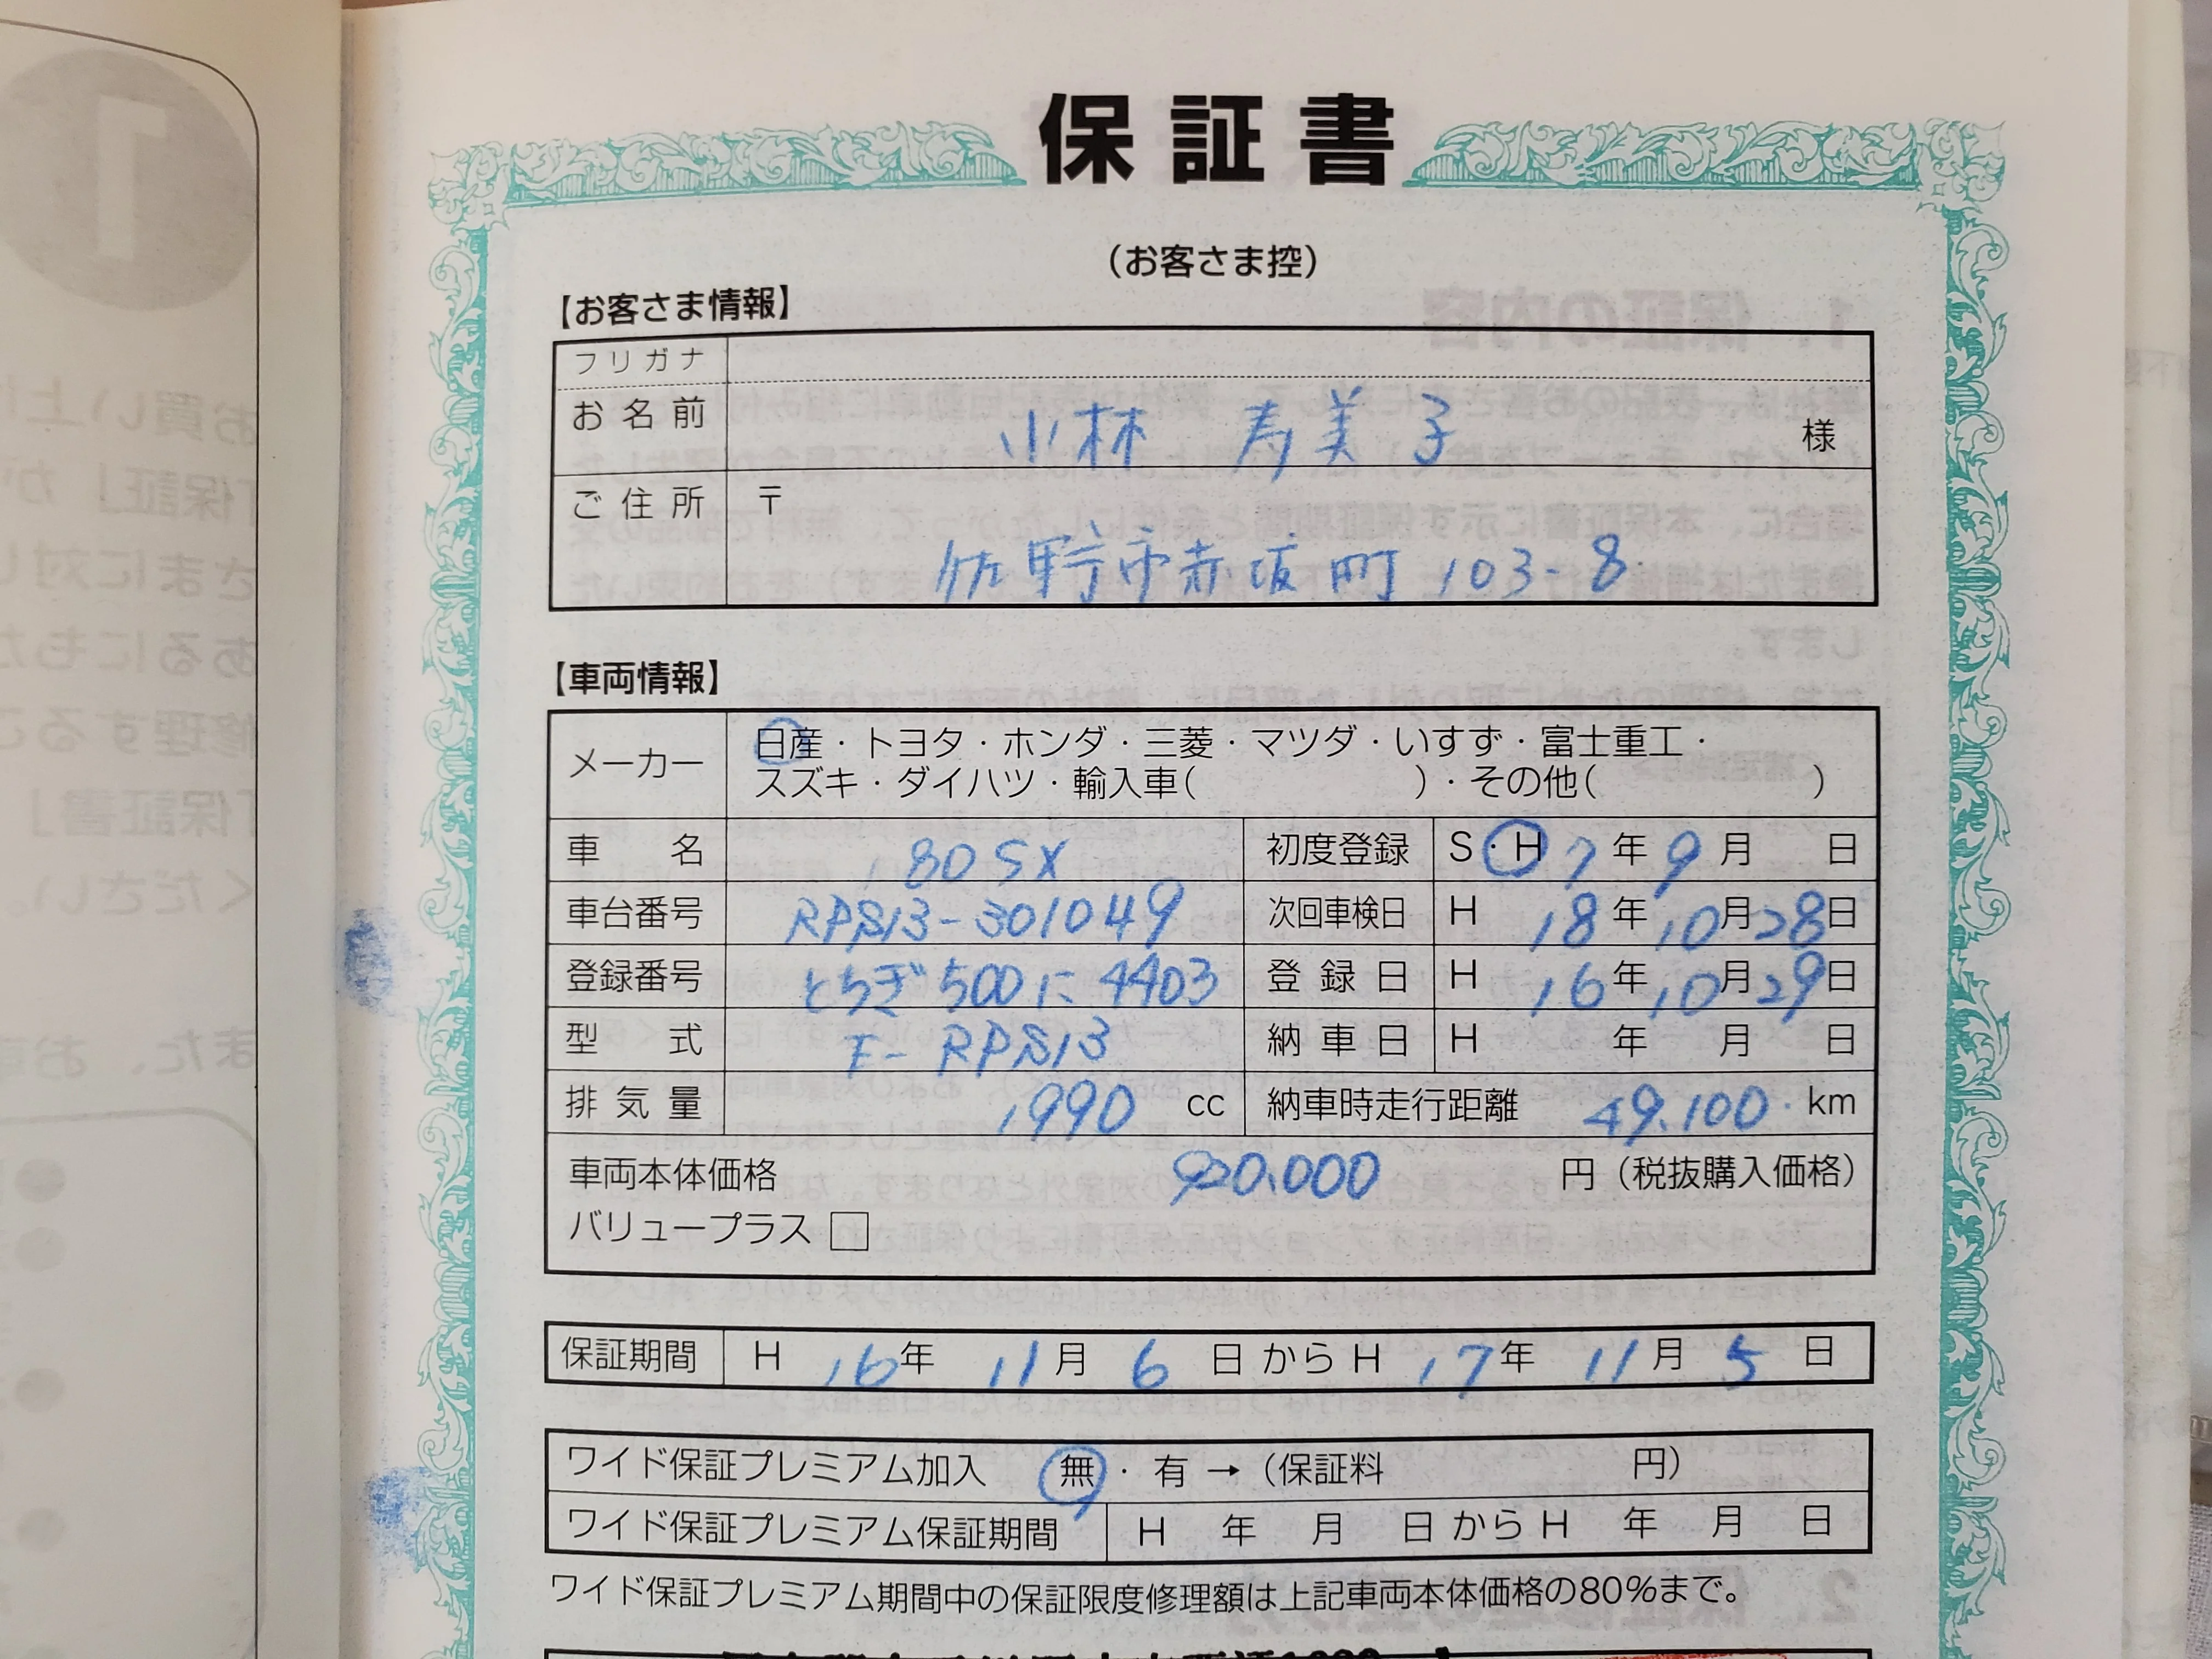 保証書
(お客さま控)
【お客さま情報】
フリガナ
お名前 小林 寿美子 様
ご住所 〒
佐野市赤坂町 103-8
【車両情報】
メーカー 日産・トヨタ・ホンダ・三菱・マツダ・いすず・富士重工・
スズキ・ダイハツ・輸入車( )・その他( )
車名 180SX 初度登録 S・H 7年9月 日
車台番号 RPS13-301049 次回車検日 H 18年10月28日
登録番号 とちぎ500に4403 登録日 H 16年10月29日
型式 E-RPS13 納車日 H 年 月 日
排気量 1990 cc 納車時走行距離 49.100 km
車両本体価格 920.000 円(税抜購入価格)
バリュープラス □
保証期間 H 16年 11月 6日からH 17年 11月 5日
ワイド保証プレミアム加入 無・有→(保証料 円)
ワイド保証プレミアム保証期間 H 年 月 日からH 年 月 日
ワイド保証プレミアム期間中の保証限度修理額は上記車両本体価格の80%まで。